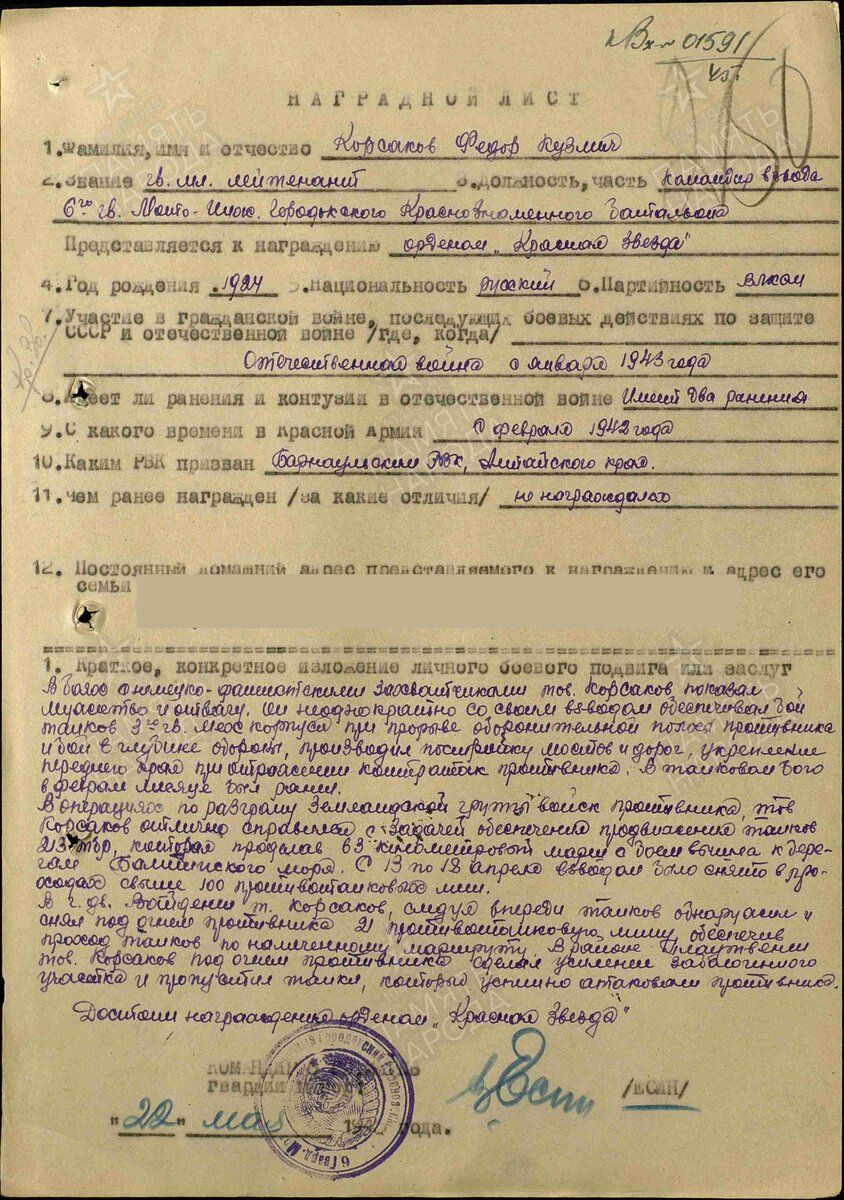 Вх № 01591
45г.
150
НАГРАДНОЙ ЛИСТ
1. Фамилия, имя и отчество Корсаков Федор Кузмич
2. Звание гв. мл. лейтенант 3. Должность, часть командир взвода
6го гв. Мото-Инж. Городокского Краснознаменного Батальона
Представляется к награждению орденом „Красная Звезда"
4. Год рождения 1924 5. Национальность русский 6. Партийность влксм
7. Участие в гражданской войне, последующих боевых действиях по защите
СССР и отечественной войне /где, когда/
Отечественная война с января 1943 года
8. Имеет ли ранения и контузии в отечественной войне Имеет два ранения
9. С какого времени в Красной Армии с февраля 1942 года
10. Каким РВК призван Барнаульским РВК, Алтайского края.
11. чем ранее награжден /за какие отличия/ не награждался
12. Постоянный домашний адрес представляемого к награждению и адрес его
семьи
1. Краткое, конкретное изложение личного боевого подвига или заслуг
В боях с немецко-фашистскими захватчиками тов. Корсаков показал
мужество и отвагу. Он неоднократно со своим взводом обеспечивал бой
танков 3го гв. мех корпуса при прорыве оборонительной полосы противника
и бой в глубине обороны, производил постройку мостов и дорог, укрепление
переднего края при отражении контратак противника. В танковом бою
в феврале месяце был ранен.
В операциях по разгрому Земландской группы войск противника, тов
Корсаков отлично справился с задачей обеспечения продвижения танков
213 тбр, которая проделав 63 километровый марш с боем вышла к берегам
Балтийского моря. С 13 по 18 апреля взводом было снято в проходах
свыше 100 противотанковых мин.
В г. дв. т. Корсаков, следуя впереди танков обнаружил и
снял под огнем противника 21 противотанковую мину, обеспечив
проход танков по намеченному маршруту. В районе
тов. Корсаков под огнем противника сделал усиление заболоченного
участка и пропустил танки, которые успешно атаковали противника.
Достоин награждения орденом „Красная Звезда"
гвардии
/ЕСИН/
"22" мая 194 года.